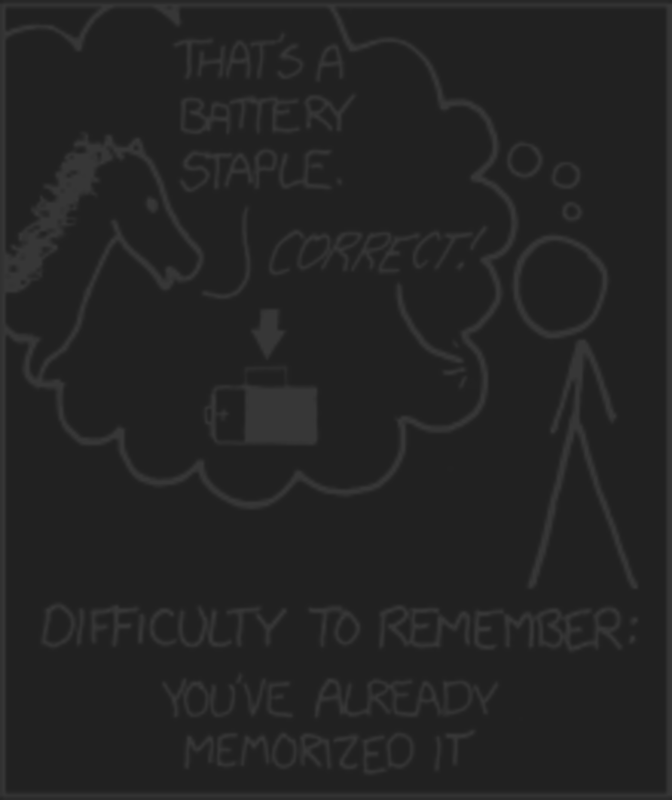 THAT'S A
BATTERY
STAPLE.
CORRECT!
+
DIFFICULTY TO REMEMBER:
YOU'VE ALREADY
MEMORIZED IT